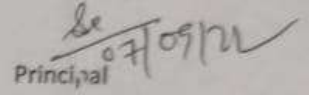 07/09/21
Principal